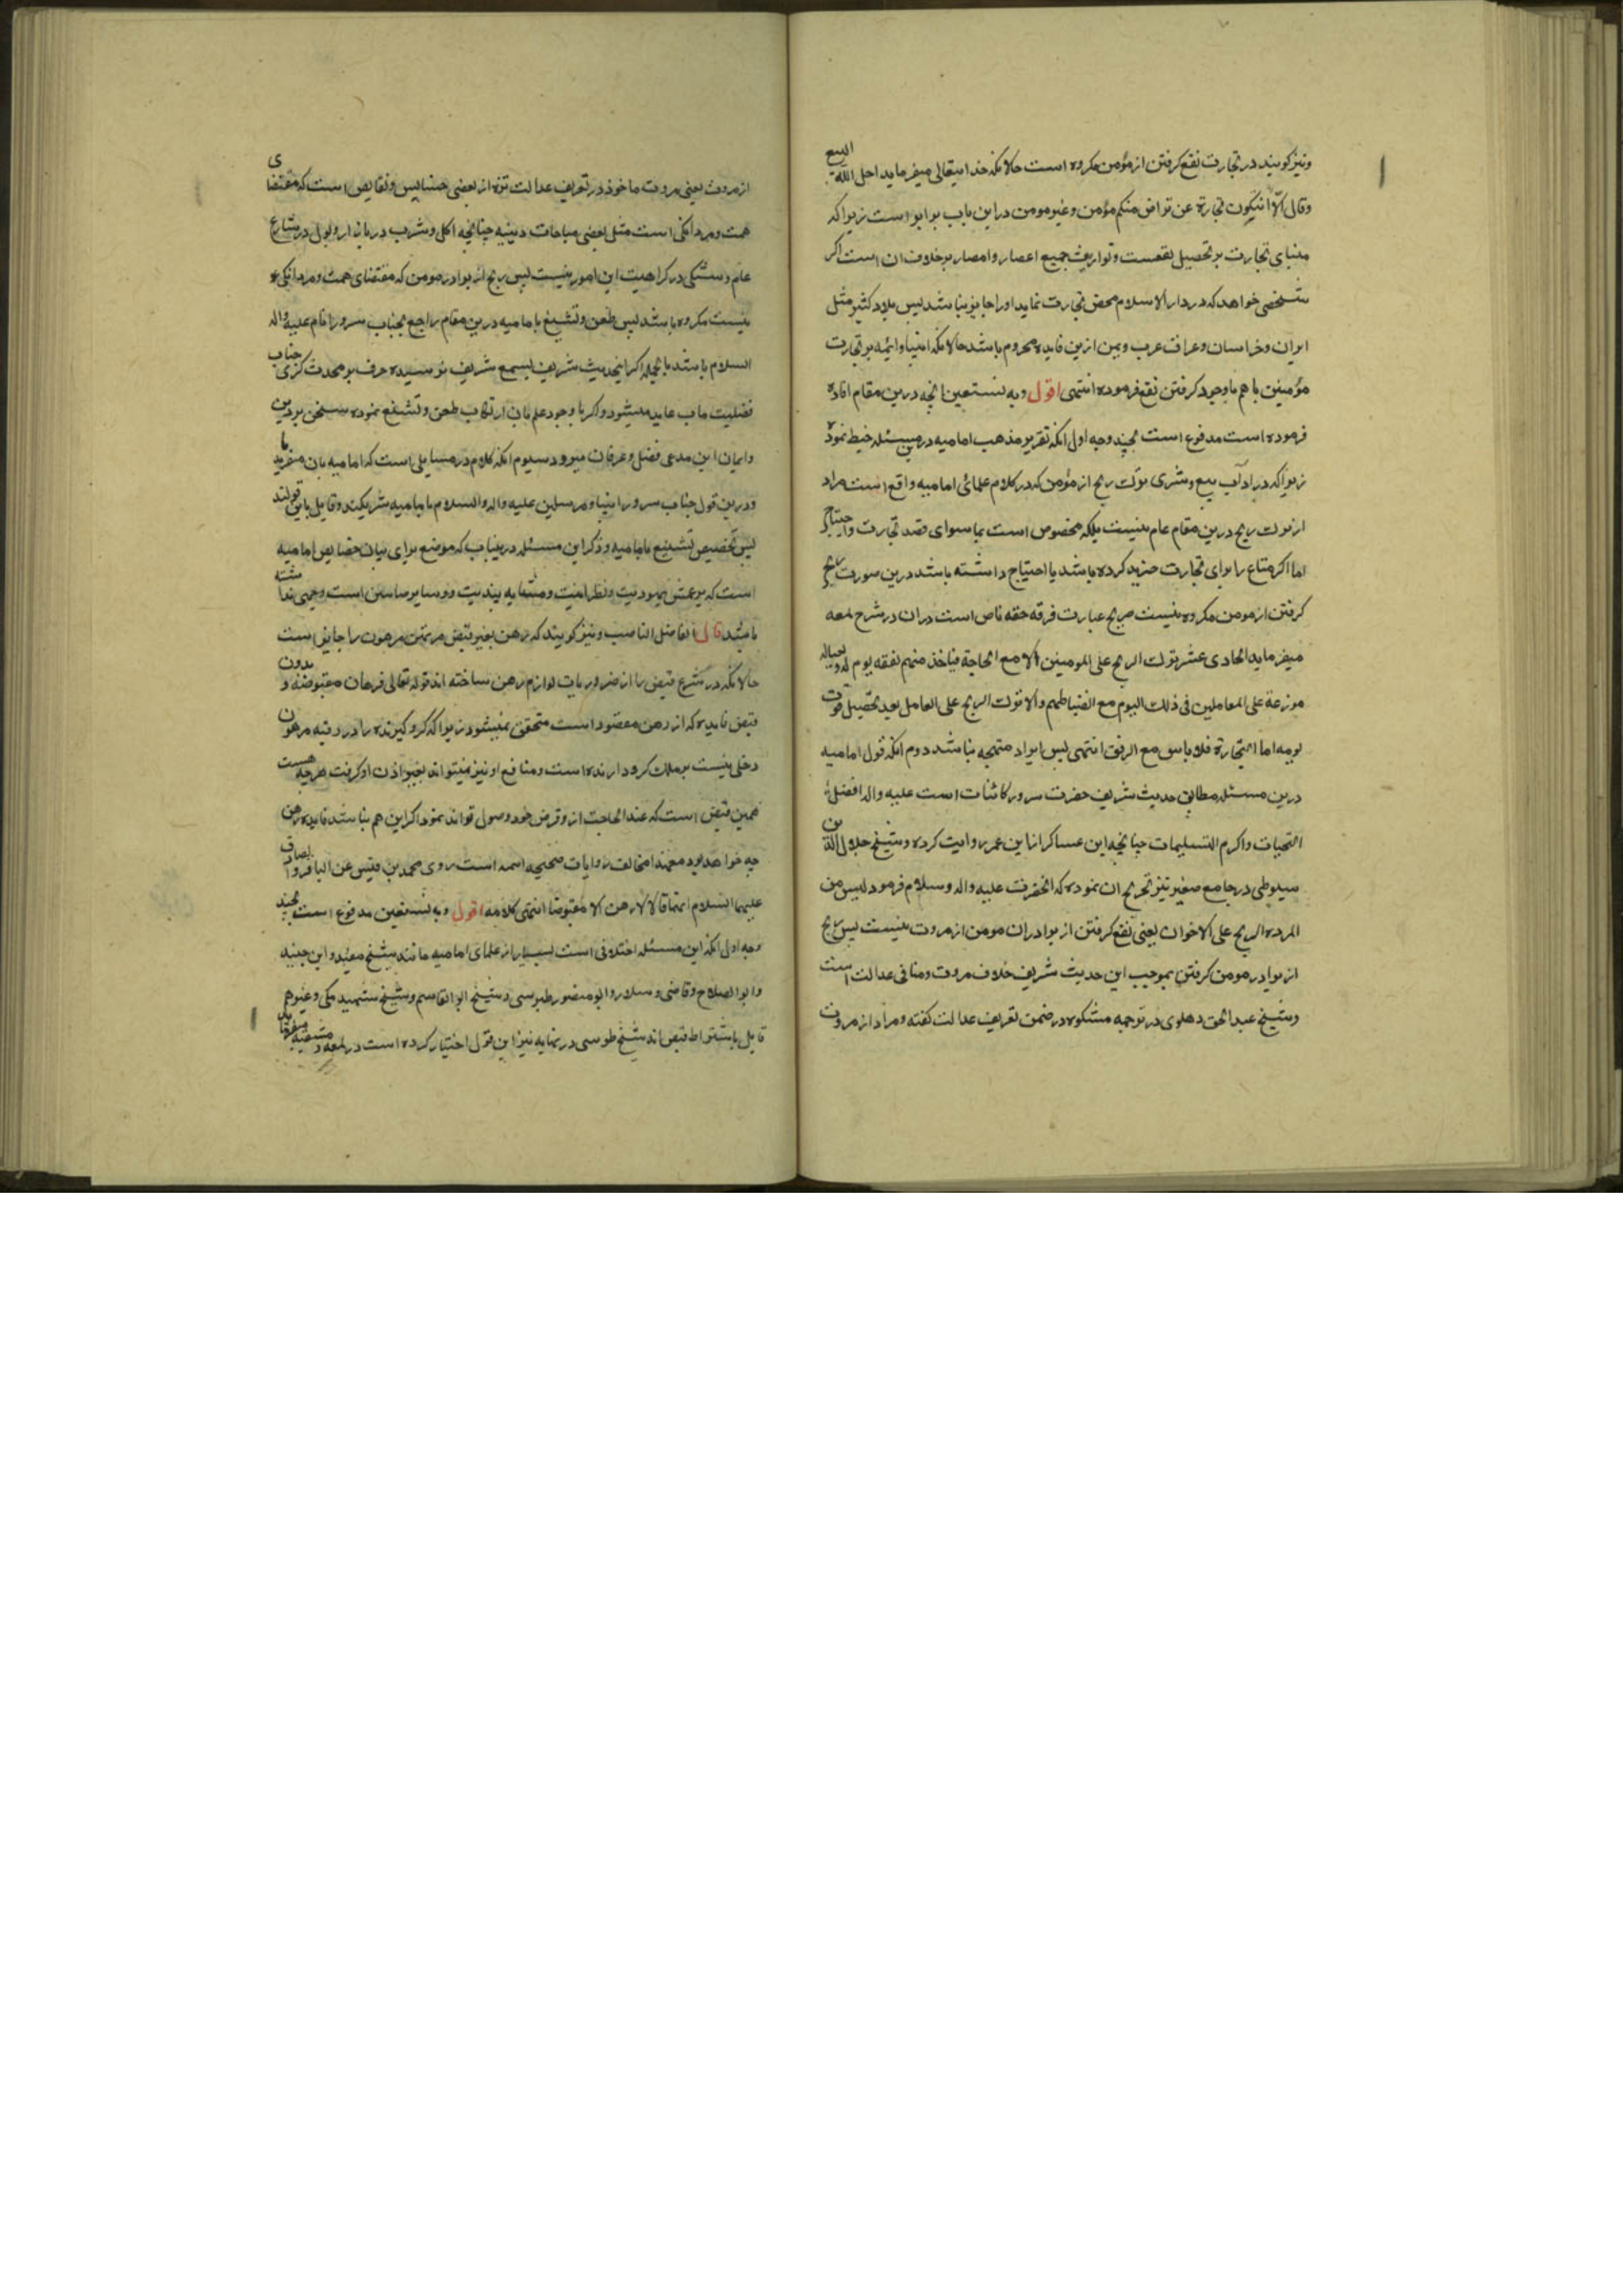 ونیز کویند در تجارت نفع کرفتن از مؤمن مکروه است حالانکه خدایتعالی میفرماید احل الله البیع
وقال الا ان یکون تجارة عن تراض منکم مؤمن وغیر مومن دراین باب برابر است زیراکه
مبنای تجارت بر تحصیل نفعست وتوارث جمیع اعصار وامصار برخلاف ان است اکر
شخصی خواهد که در دار الاسلام محض تجارت نماید اورا جایز نباشد پس بلاد کثیر مثل
ایران وخراسان وعراق عرب ویمن ازین فایده محروم باشند حالانکه انبیا وائمه بر تجارت
مؤمنین باهم باوجود کرفتن نفع فرموده انتهی اقول وبه نستعین انچه درین مقام افاده
فرموده است مدفوع است بچند وجه اول انکه تقریر مذهب امامیه درین مسئله خبط نموده
زیراکه در اداب بیع وشری ترک ربح از مؤمن که در کلام علمای امامیه واقع است مراد
از ترک ربح درین مقام عام نیست بلکه مخصوص است بما سوای قصد تجارت واحتیاج
اما اکر متاع را برای تجارت خرید کرده باشد یا احتیاج داشته باشد درین صورت ربح
کرفتن از مومن مکروه نیست صریح عبارت فرقه حقه ناص است دران در شرح لمعه
میفرماید الحادی عشر ترک الربح علی المومنین الا مع الحاجة فیاخذ منهم نفقه یوم له ولعیاله
موزعة علی المعاملین فی ذلک الیوم مع انضباطهم والا ترک الربح علی المعامل بعد تحصیل قوت
یومه اما التجارة فلا باس مع الرفق انتهی پس ایراد متوجه نباشد دوم انکه قول امامیه
درین مسئله مطابق حدیث شریف حضرت سرور کائنات است علیه واله افضل
التحیات واکرم التسلیمات چنانچه ابن عساکر از ابن عمر روایت کرده وشیخ جلال الدین
سیوطی در جامع صغیر نیز تخریج ان نموده که انحضرت علیه واله وسلام فرمود لیس من
المروه الربح علی الاخوان یعنی نفع کرفتن از برادران مومن از مروت نیست پس ربح
از برادر مومن کرفتن بموجب این حدیث شریف خلاف مروت ومنافی عدالت است
وشیخ عبد الحق دهلوی در ترجمه مشکوه در ضمن تعریف عدالت کفته ومراد از مروت
از مروت یعنی مروت ماخوذ در تعریف عدالت تنزه از بعضی خسایس ونقایص است که مقتضای
همت ومردانکی است مثل بعضی مباحات دینیه چنانچه اکل وشرب در بازار وبول در شارع
عام وشکی در کراهیت این امور نیست پس ربح از برادر مومن که مقتضای همت ومردانکی
نیست مکروه باشد پس طعن وتشنیع بامامیه درین مقام راجع بجناب سرور انام علیه واله
السلام باشد بالجمله اکر اینحدیث شریف بسمع شریف نرسیده حرف بر محدث کری جناب
فضیلت ماب عاید میشود واکر با وجود علم بان ارتکاب طعن وتشنیع نموده سخن بر دین
وایمان این مدعی فضل وعرفان میرود سیوم انکه کلام در مسایلی است که امامیه بان منفردند
ودرین قول جناب سرور انبیا ومرسلین علیه واله والسلام با امامیه شریکند وقایل باین قولند
پس تخصیص تشنیع بامامیه وذکر این مسئله درینباب که موضع برای بیان خصایص امامیه
است که بزعمش یهودیت ونصرانیت ومشابه بیندیت ودوسایر ساس است وجهی نداشته
باشد قال الفاضل الناصب ونیز کویند که رهن بغیر قبض مرتهن مرهون را جایز است
حالانکه در شرع قبض را از ضروریات لوازم رهن ساخته اند قوله تعالی فرهان مقبوضه وبدون
قبض فایده که از رهن مقصود است متحقق نمیشود زیراکه کرو کیرنده را در رقبه مرهون
دخلی نیست بر ملک کرو دارنده است ومنافع او نیز نمیتواند بغیر اذن او کرفت هرچه هست
همین قبض است که عند الحاجت ازو قرض خود وصول تواند نمود اکر این هم نباشد فایده رهن
چه خواهد بود معهذا مخالف روایات صحیحه ائمه است روی محمد بن قیس عن الباقر والصادق
علیهما السلام انهما قالا لا رهن الا مقبوضا انتهی کلامه اقول وبه نستعین مدفوع است بچند
وجه اول انکه این مسئله اختلافی است بسیار از علمای امامیه مانند شیخ مفید وابن جنید
وابو الصلاح وقاضی وسلار وابو منصور طبرسی وشیخ ابو القاسم وشیخ شهید مکی وغیرهم
قایل باشتراط قبض اند شیخ طوسی در نهایه نیز این قول اختیار کرده است در لمعه دمشقیه